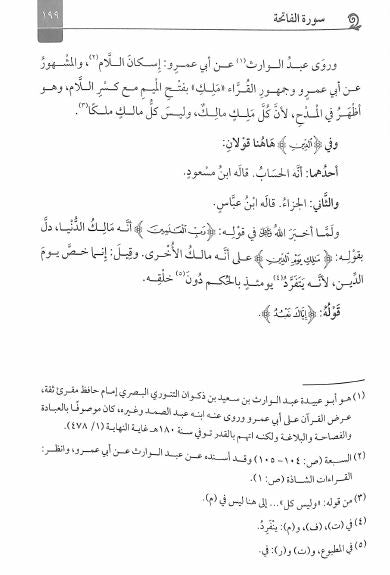 سورة الفاتحة
١٩٩
وروَى عبدُ الوارثِ(١) عن أبي عمرو: إسكانَ اللَّام(٢)، والمشهورُ
عن أبي عمرو وجمهورِ القُرَّاء «مَلِكِ» بفتْحِ الميمِ مع كسْرِ اللَّام، وهو
أظهرُ في المدْحِ، لأنَّ كُلَّ مَلِكٍ مالِكٌ، وليسَ كلُّ مالكٍ ملكًا(٣).
وفي ﴿ٱلدِّينِ﴾ هَاهُنا قولانِ:
أحدُهما: أنَّه الحسَابُ. قاله ابنُ مسعودٍ.
والثَّاني: الجزاءُ. قاله ابنُ عبَّاسٍ.
ولَمَّا أخبَرَ اللهُ ﷻ في قولِه: ﴿رَبِّ ٱلْعَٰلَمِينَ﴾ أنَّه مَالِكُ الدُّنْيا، دلَّ
بقولِه: ﴿مَٰلِكِ يَوْمِ ٱلدِّينِ﴾ على أنَّه مالكُ الأُخْرى. وقِيلَ: إنما خصَّ يومَ
الدِّين، لأنَّه يَتَفَرَّدُ(٤) يومئذٍ بالحُكمِ دُونَ(٥) خلْقِه.
قَوْلُهُ: ﴿إِيَّاكَ نَعْبُدُ﴾.
(١) هو أبو عبيدة عبد الوارث بن سعيد بن ذكوان التنوري البصري إمام حافظ مقرئ ثقة،
عرض القرآن على أبي عمرو وروى عنه ابنه عبد الصمد وغيره، كان موصوفا بالعبادة
والفصاحة والبلاغة ولكنه اتهم بالقدر توفي سنة ١٨٠هـ غاية النهاية (١/ ٤٧٨).
(٢) السبعة (ص: ١٠٤- ١٠٥) وقد أسنده عن عبد الوارث عن أبي عمرو، وانظر:
القراءات الشاذة (ص: ١).
(٣) من قوله: «وليس كل»... إلى هنا ليس في (م).
(٤) في (ت)، (ف)، و(م): يَنْفَرِدُ.
(٥) في المطبوع، و(ت) و(ر): في.